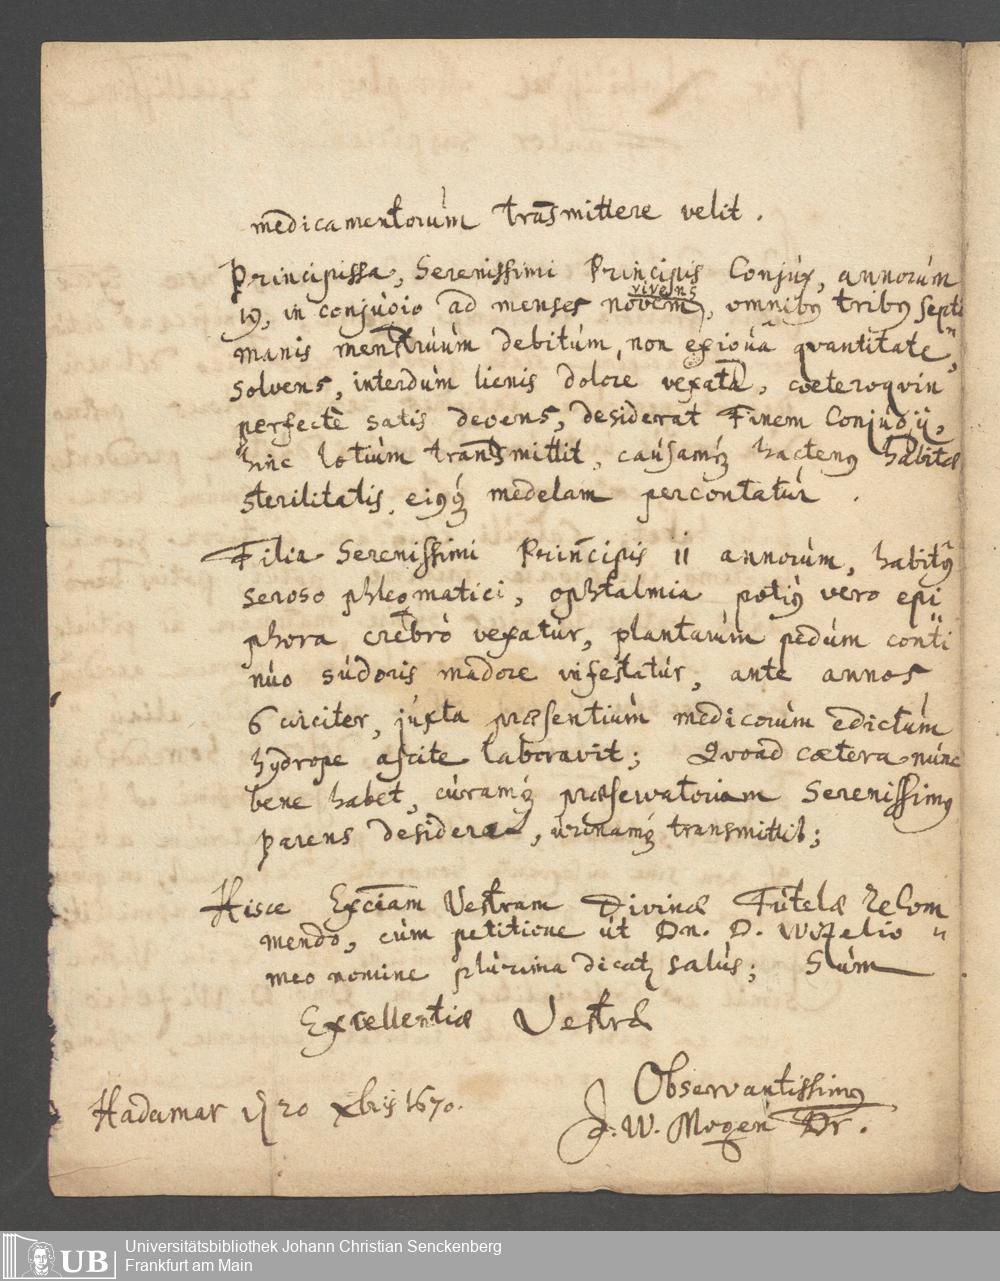 medicamentorùm transmittere velit.
Principissa, Serenissimi Principis Conjùx, annorùm
19, in conjùgio ad menses novem vivens, omnibꝰ tribꝰ septi
manis menstrùùm debitùm, non exigùâ qvantitate,
solvens, interdùm lienis dolore vexata, cœteroqvin
perfectè satis degens, desiderat Finem Conjùgij,
hinc lotiùm transmittit, caùsamq́ hactenꝰ habitæ
sterilitatis, eiꝰq́ medelam percontatùr.
Filia Serenissimi Principis 11 annorùm, habitꝰ
seroso phlegmatici, ophtalmia potiꝰ vero epi
phora crebrò vexatùr, plantarùm pedùm conti
nùo sùdoris madore infestatùr, ante annos
6 circiter, jùxta præsentiùm medicorùm edictùm
hydrope ascite laboravit; Qvoad cætera nùnc
bene habet, cùramq́ præservatoriam Serenissimꝰ
parens desiderat, ùrinamq́ transmittit;
Hisce Exc̃iam Vestram Divinæ Tùtelæ recom
mendo, cùm petitione ùt Dn. D. Witzelio
meo nomine plùrima dicat salùs; Sùm
Excellentiæ Vestræ
Observantissimꝰ
Hadamar 20 xbris 1670.
J. W. Mogen Dr.
UB
Universitätsbibliothek Johann Christian Senckenberg
Frankfurt am Main